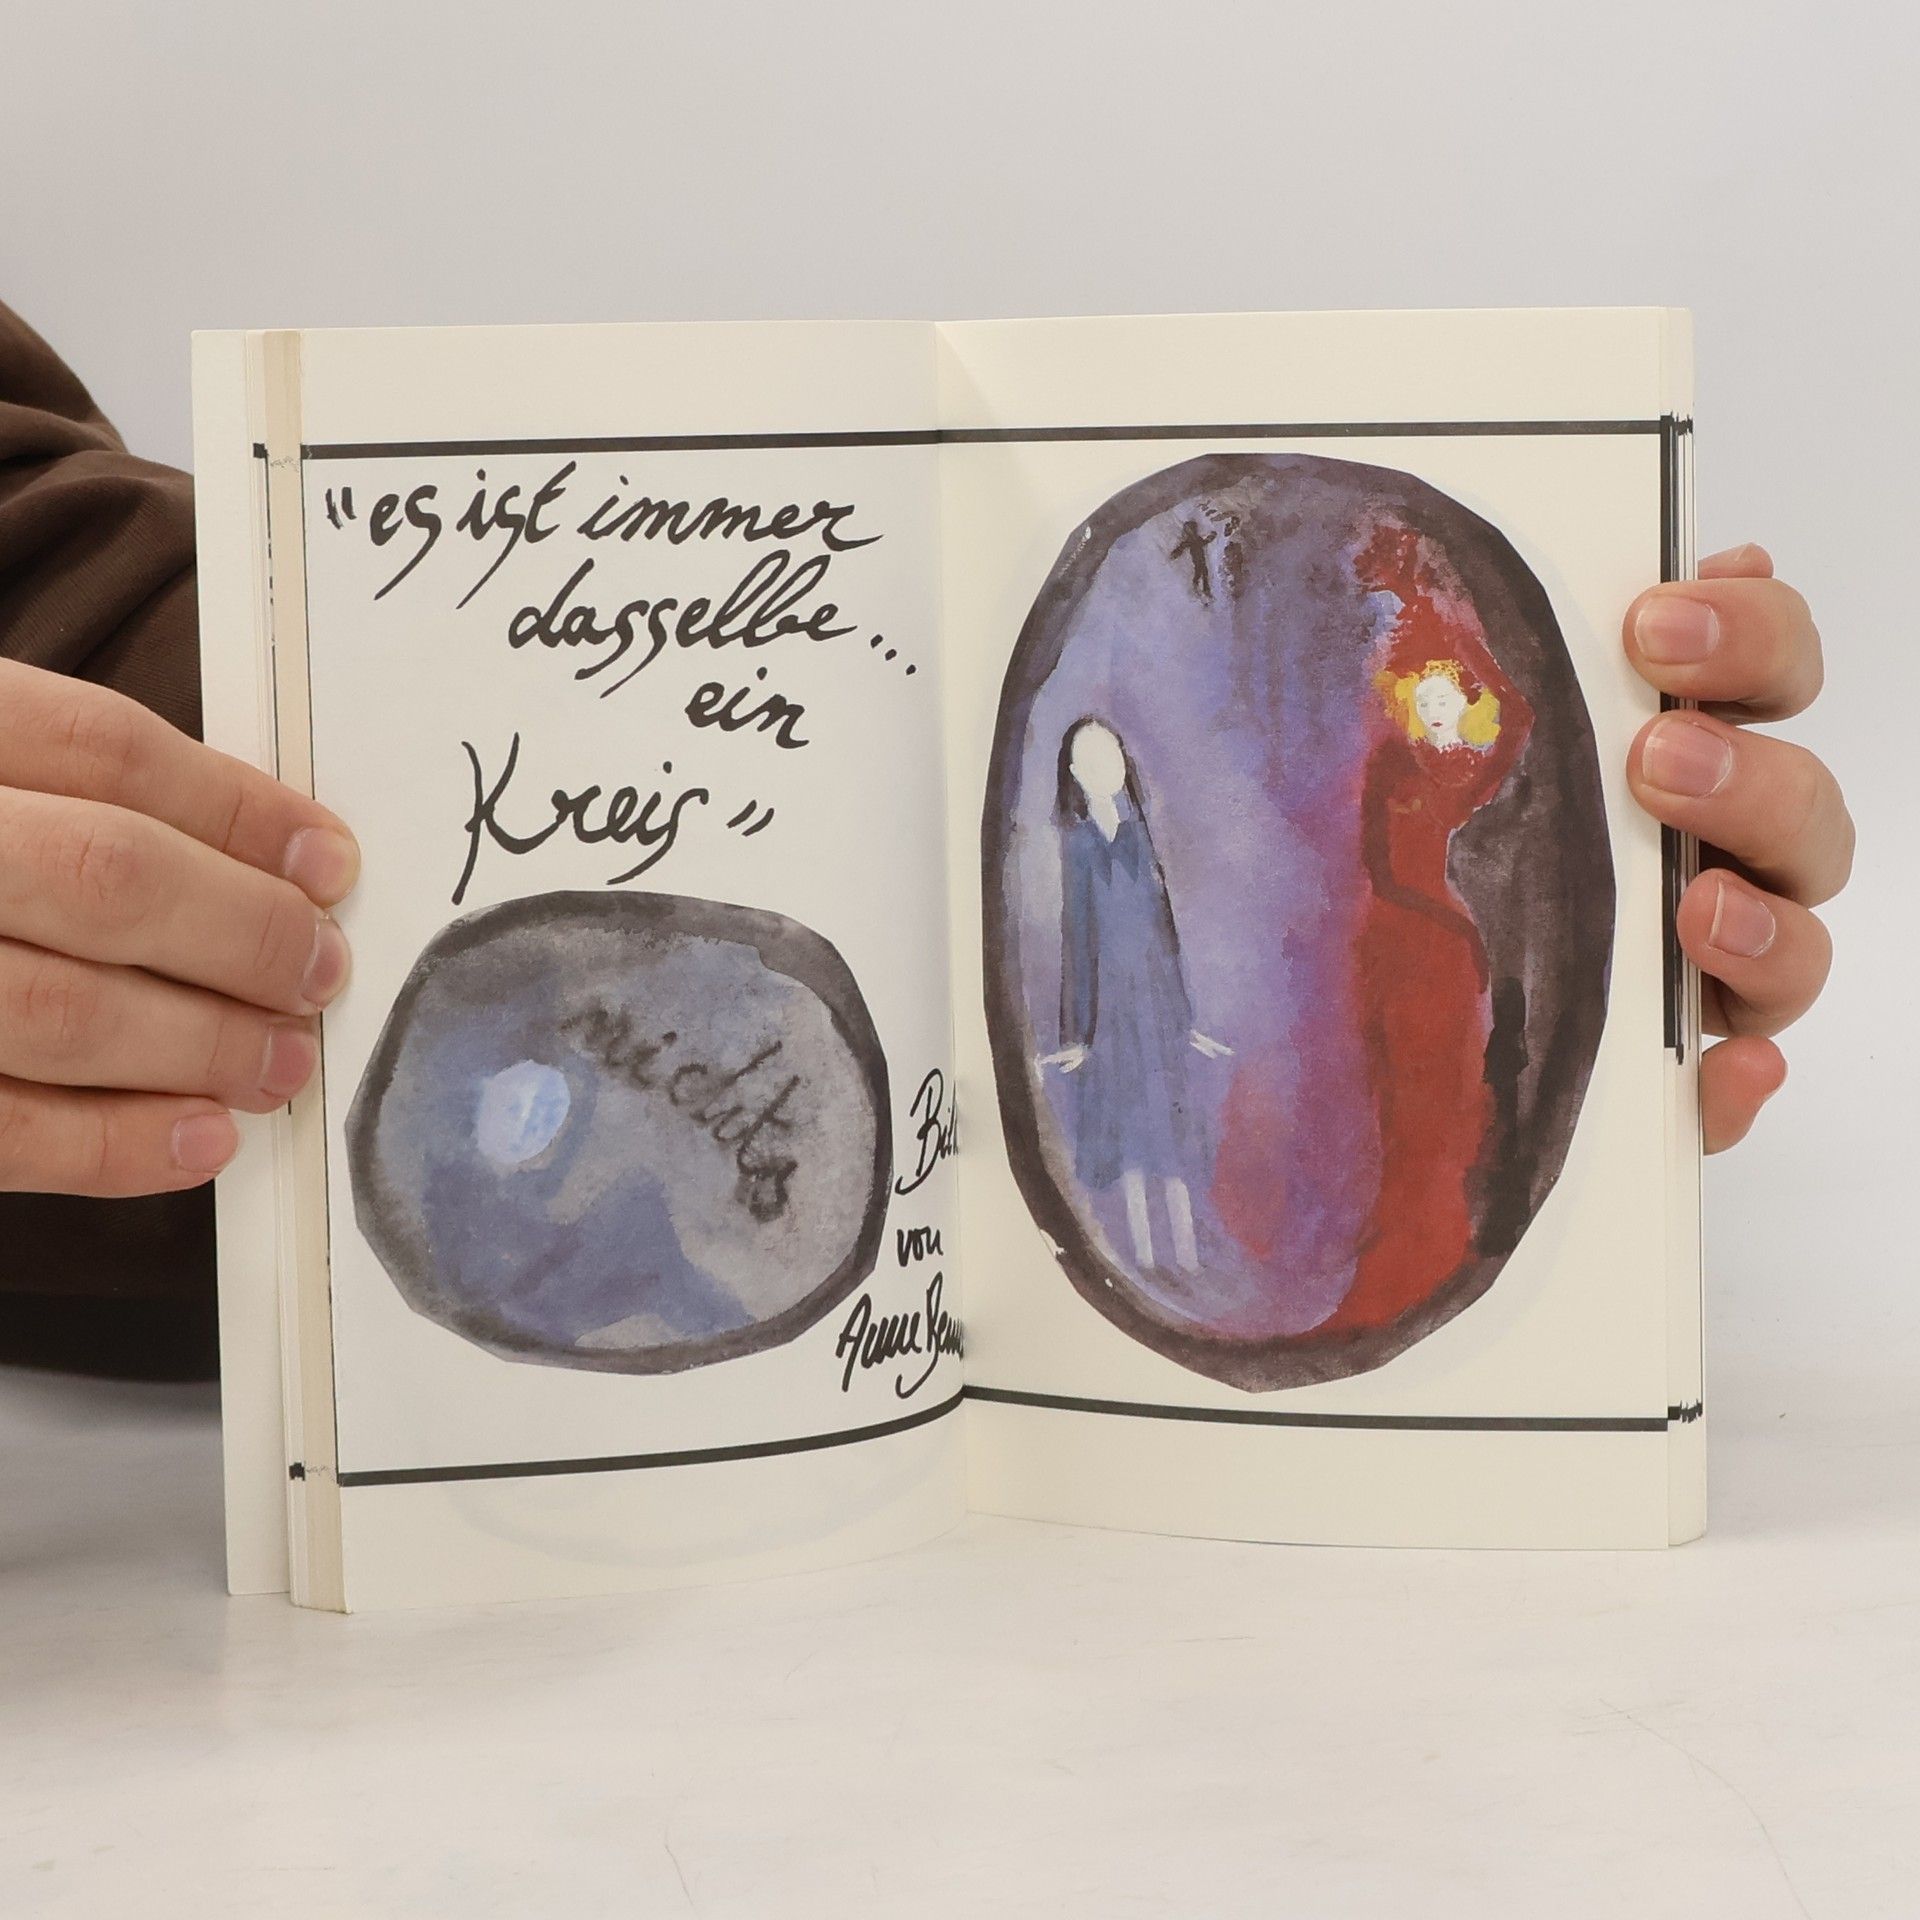 "es ist immer
dasselbe...
ein
Kreis"
nichts
von
Anne